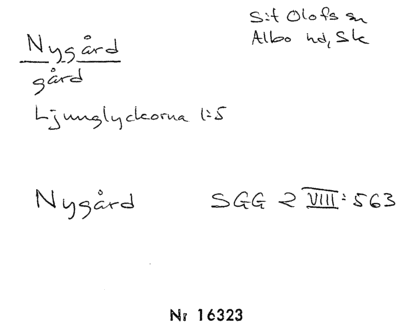 S:t Olofs sn
Albo hd, Sk
Nygård
gård
Ljunglyckorna 1:5
Nygård SGG 2 VIII: 563
Nr 16323